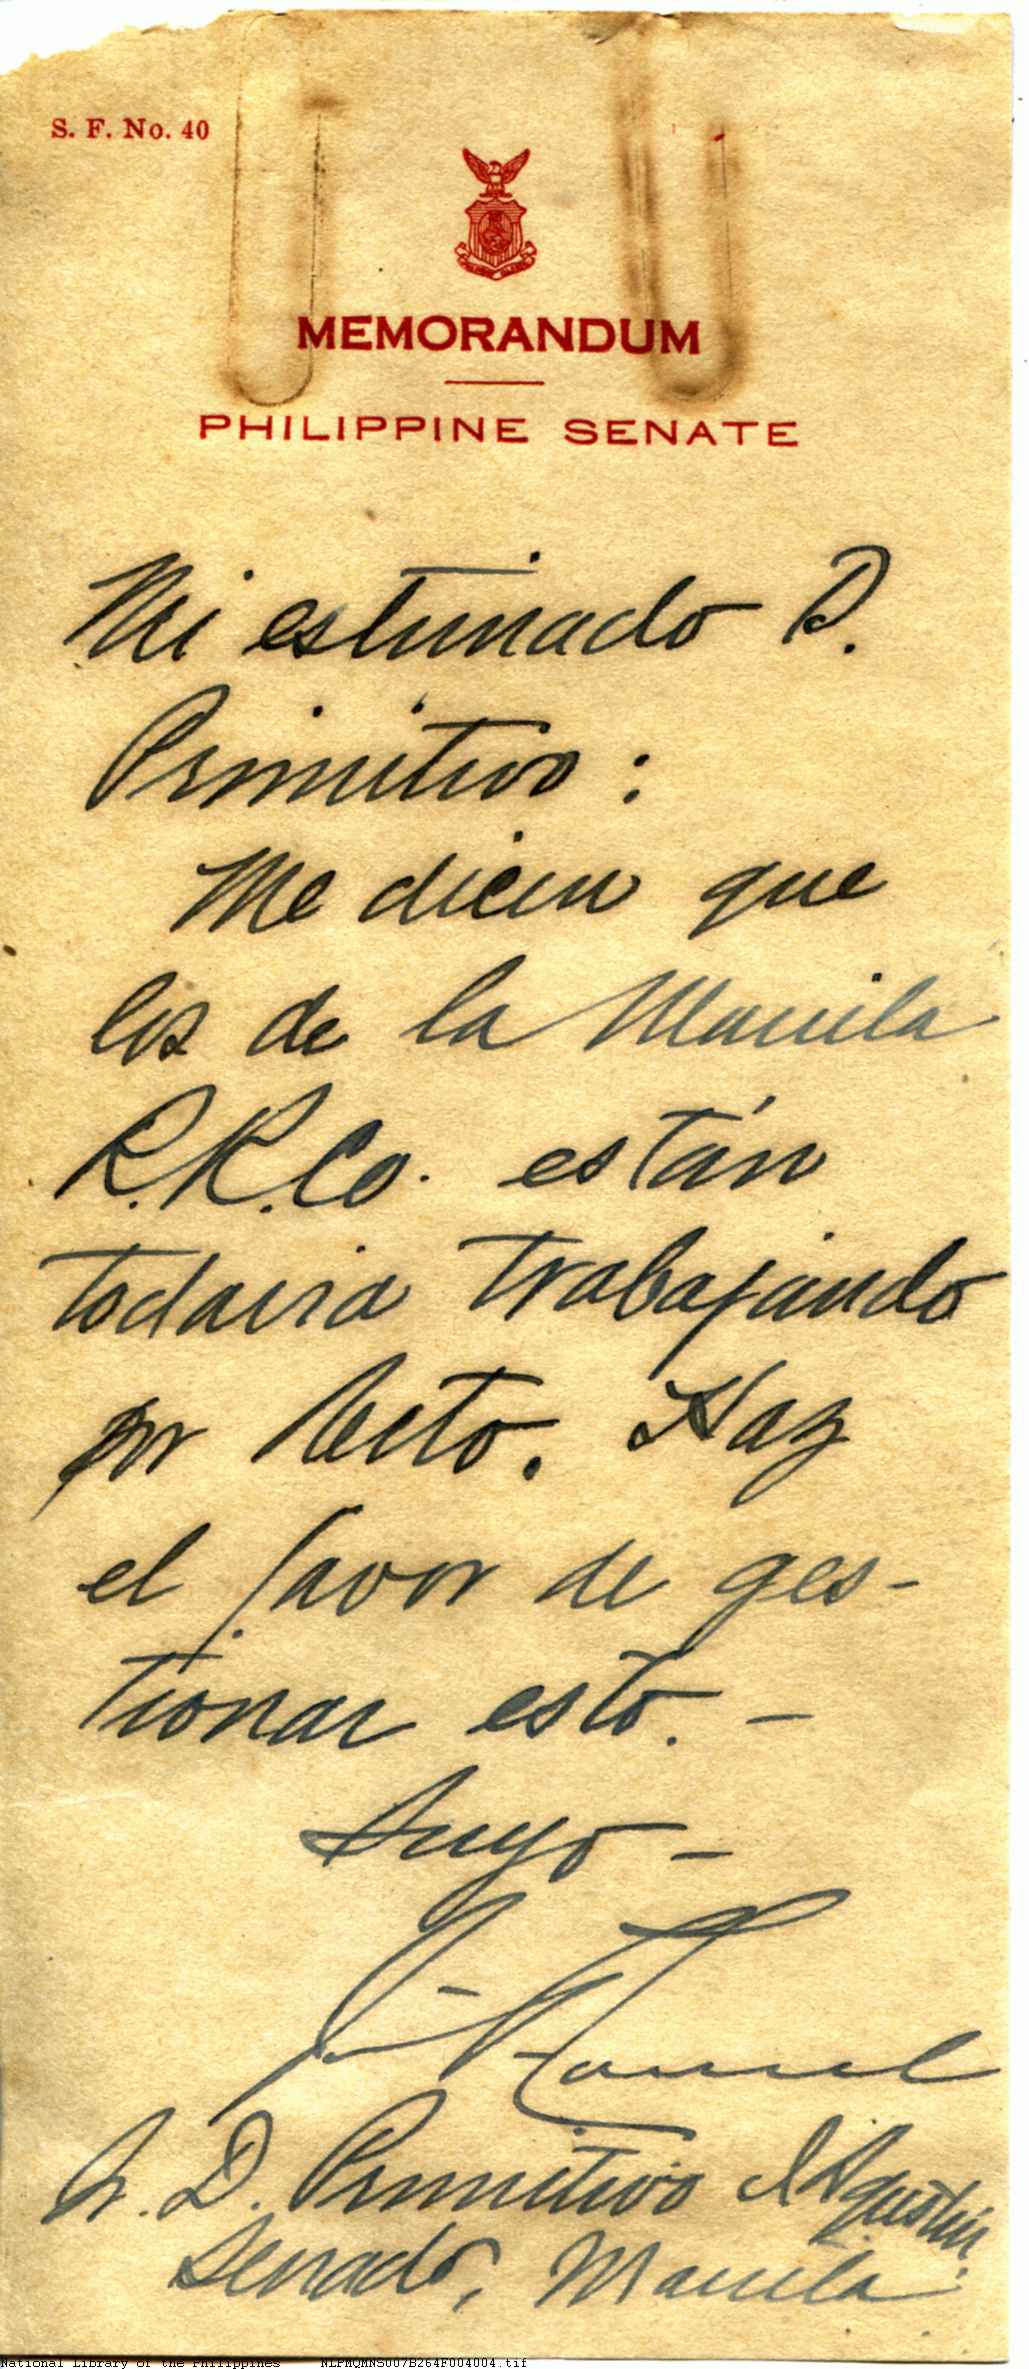 S. F. No. 40
MEMORANDUM
PHILIPPINE SENATE
Mi estimado D.
Primitivo:
Me dicen que
los de la Manila
R.R.Co. están
todavia trabajando
por Veto. Haz
el favor de ges-
tionar esto. -
Suyo -
Sr. D. Primitivo S Agustin
Senado, Manila
National Library of the Philippines NLPMQMNS007B264F004004.tif